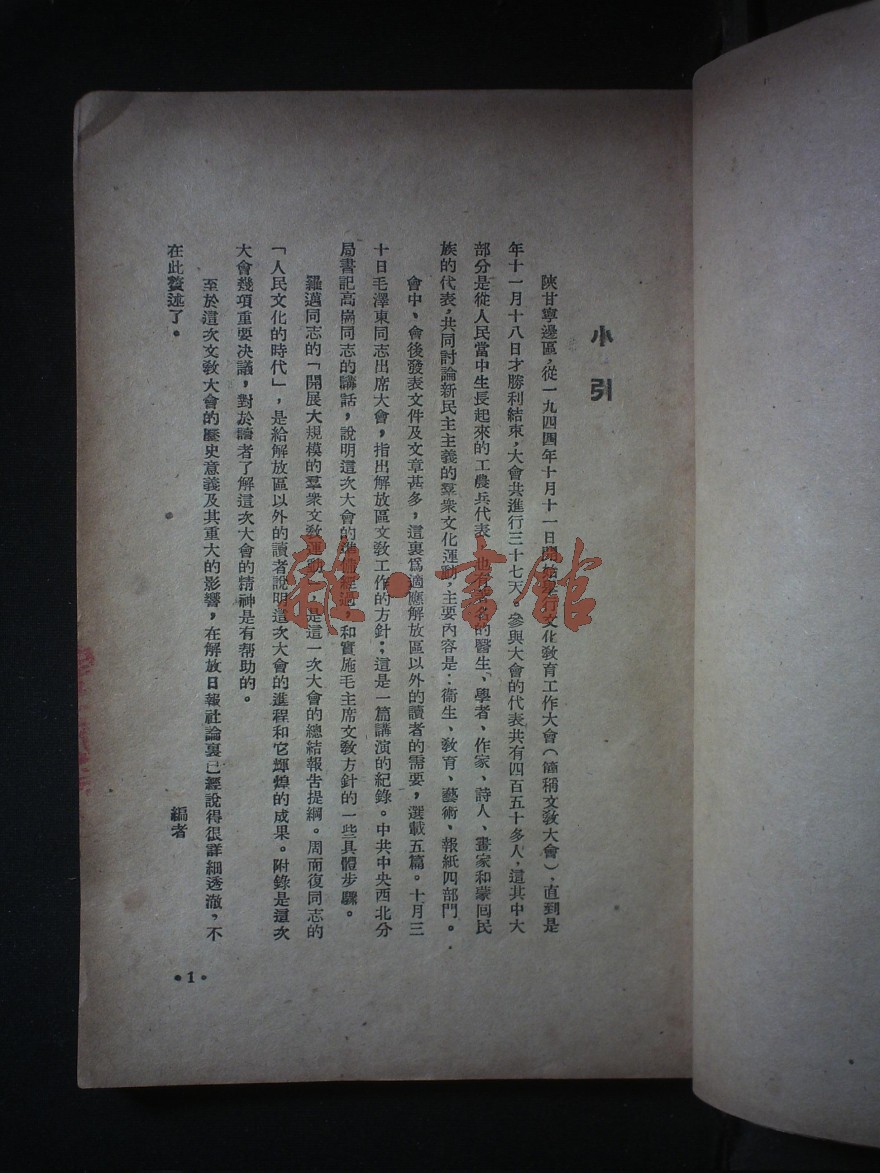 小引
陝甘寧邊區，從一九四四年十月十一日開始舉行文化敎育工作大會（簡稱文敎大會），直到是
年十一月十八日才勝利結束，大會共進行三十七天，參與大會的代表共有四百五十多人，這其中大
部分是從人民當中生長起來的工農兵代表，也有著名的醫生、學者、作家、詩人、畫家和蒙囘民
族的代表，共同討論新民主主義的羣衆文化運動，主要內容是：衞生、敎育、藝術、報紙四部門。
會中、會後發表文件及文章甚多，這裏爲適應解放區以外的讀者的需要，選載五篇。十月三
十日毛澤東同志出席大會，指出解放區文敎工作的方針；這是一篇講演的紀錄。中共中央西北分
局書記高崗同志的講話，說明這次大會的準備經過，和實施毛主席文敎方針的一些具體步驟。
羅邁同志的「開展大規模的羣衆文敎運動」，是這一次大會的總結報吿提綱。周而復同志的
「人民文化的時代」，是給解放區以外的讀者說明這次大會的進程和它輝煌的成果。附錄是這次
大會幾項重要決議，對於讀者了解這次大會的精神是有帮助的。
至於這次文敎大會的歷史意義及其重大的影響，在解放日報社論裏已經說得很詳細透澈，不
在此贅述了。
編者
•1•
雜·書館